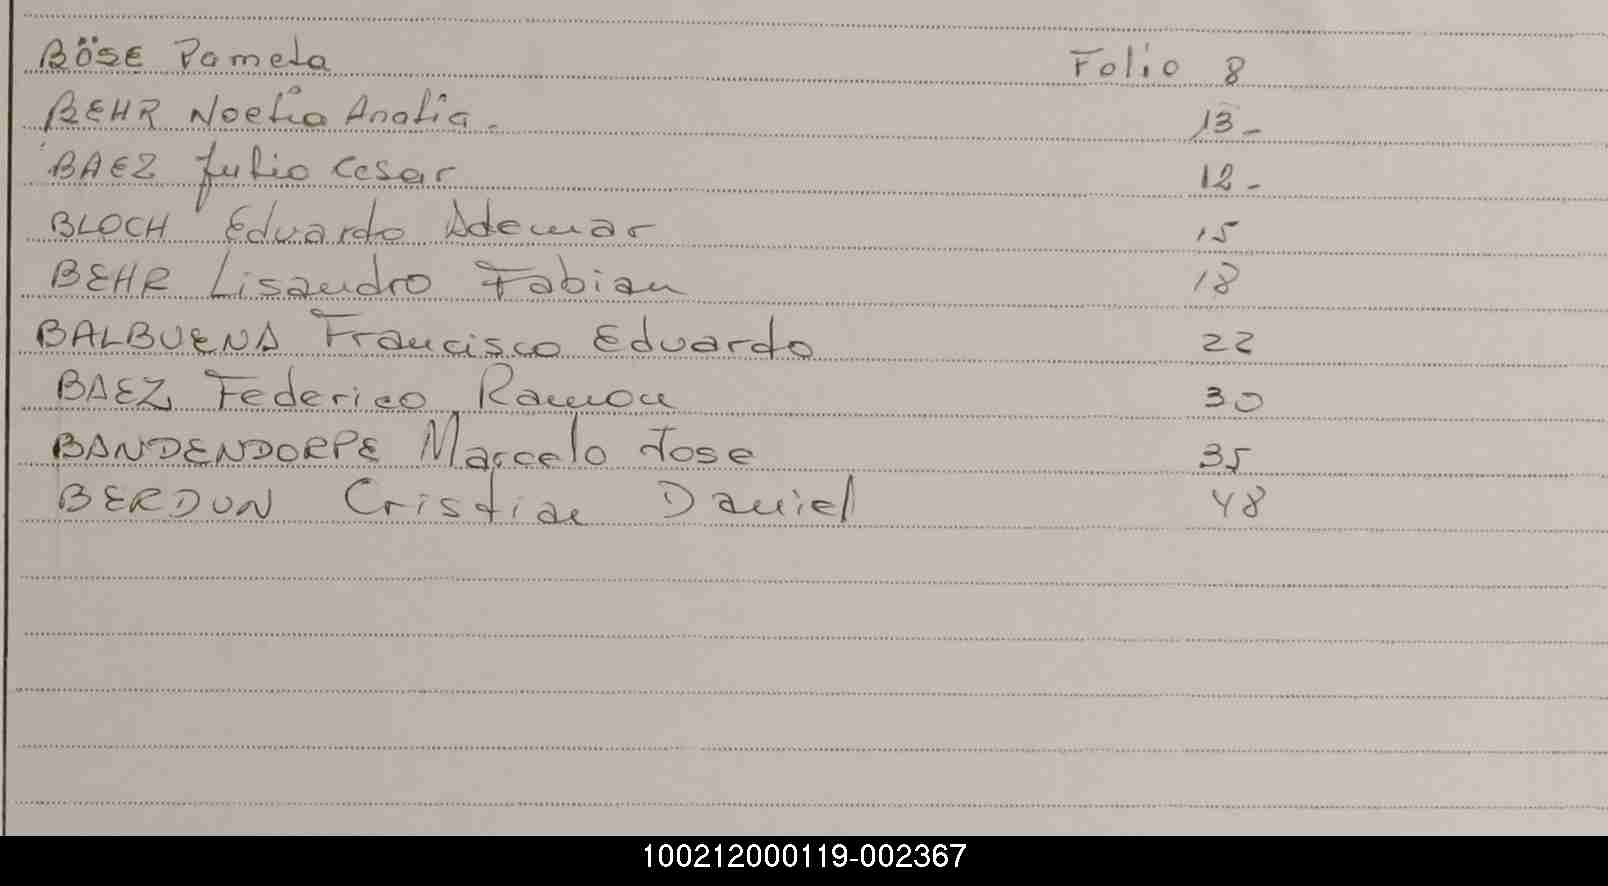 BÖSE Pamela Folio 8
BEHR Noelia Analia. 13-
BAEZ Julio Cesar 12-
BLOCH Eduardo Ademar 15
BEHR Lisandro Fabian 18
BALBUENA Francisco Eduardo 22
BAEZ Federico Ramon 30
BANDENDORPE Marcelo Jose 35
BERDUN Cristian Daniel 48
100212000119-002367